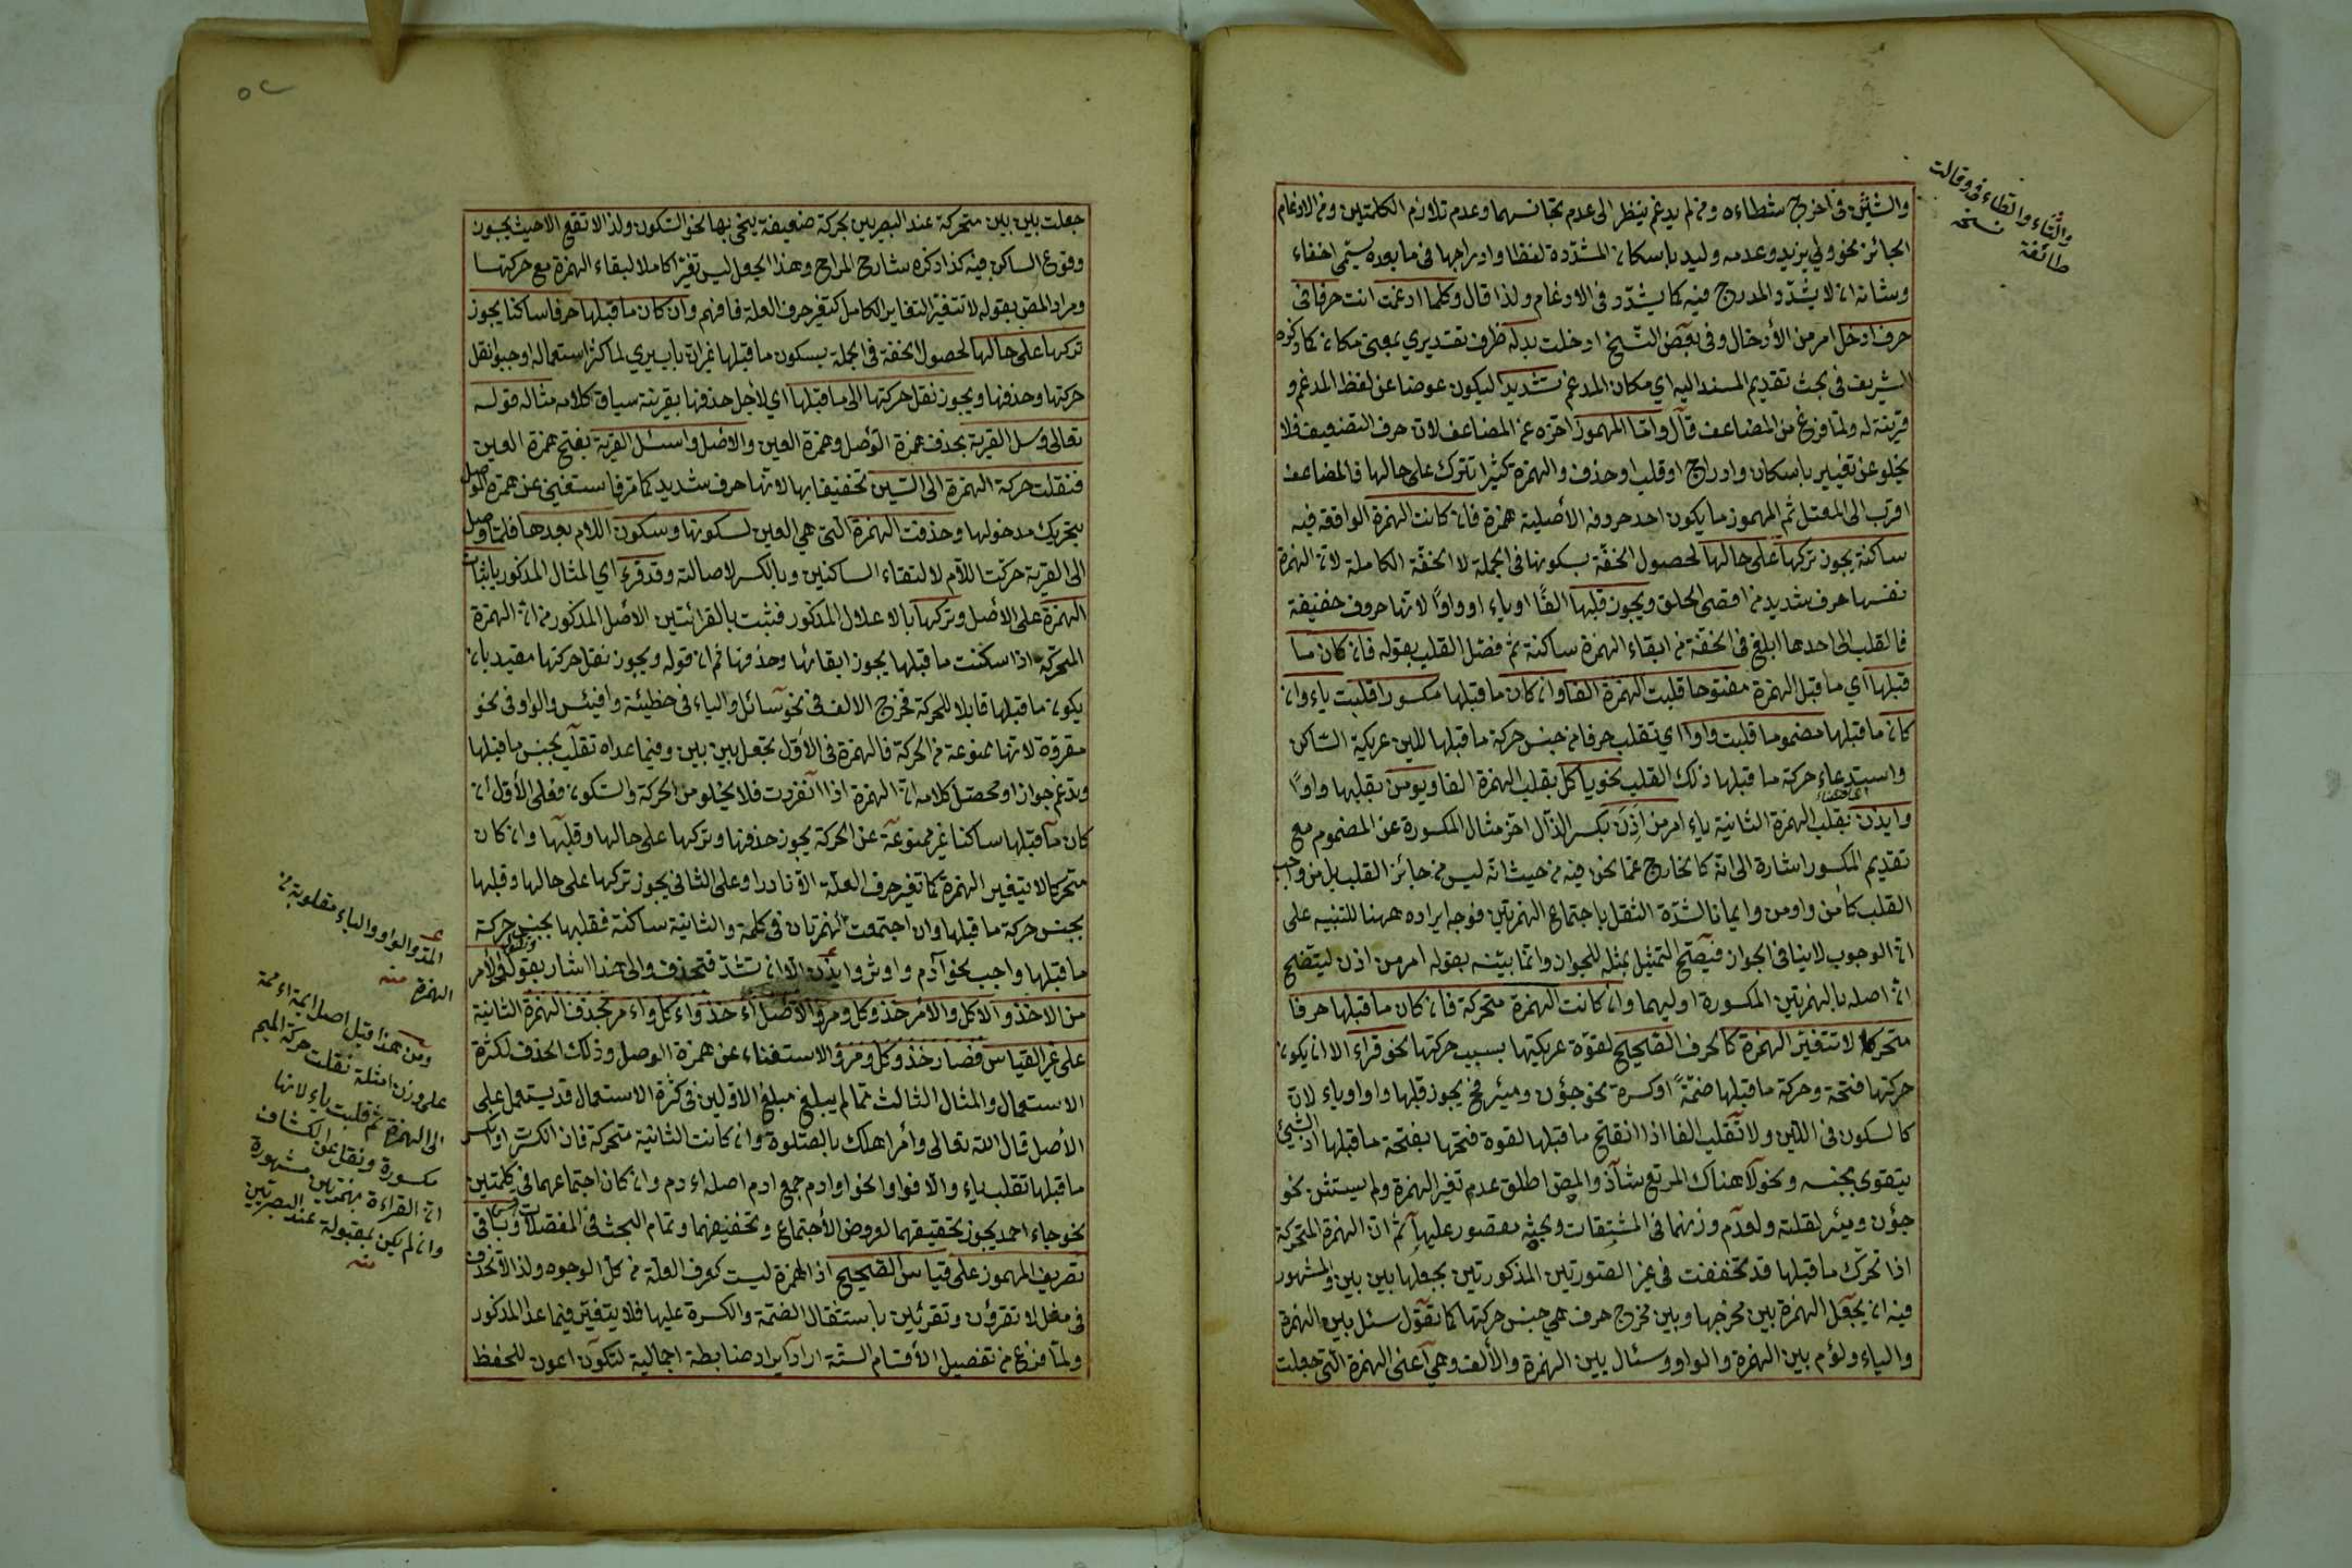 والشين فى اخرج شطاءه ومن لم يدغم ينظر الى عدم تجانسهما وعدم تلازم الكلمتين ومن الادغام
الجائز نحو ولي يزيد وعدمه وليد باسكان المشددة لفظا وادراجها فى ما بعده يسمى اخفاء
وشانه ان لا يشدد المدرج فيه كما يشدد فى الادغام ولذا قال وكلما ادغمت انت حرفا فى
حرف ادخل امر من الأدخال وفى بعض النسخ ادخلت بدله ظرف تقديري بمعنى مكانه كما ذكره
الشريف فى بحث تقديم المسند اليه اي مكان المدغم تشديدا ليكون عوضا عن لفظ المدغم و
قرينة له ولما فرغ من المضاعف قال واما المهموز اخره عن المضاعف لان حرف التضعيف فلا
يخلو عن تغيير باسكان وادراج او قلب او حذف والهمزة كثيرا تترك على حالها فالمضاعف
اقرب الى المعتل ثم المهموز ما يكون احد حروفه الأصلية همزة فان كانت الهمزة الواقفة فيه
ساكنة يجوز تركها على حالها لحصول الخفة بسكونها فى الجملة لا الخفة الكاملة لان الهمزة
نفسها حرف شديد من اقصى الحلق ويجوز قلبها الفا او ياء او واوا لانها حروف خفيفة
فالقلب الى احدها ابلغ فى الخفة من ابقاء الهمزة ساكنة ثم فصل القلب بقوله فان كان ما
قبلها اي ما قبل الهمزة مفتوحا قلبت الهمزة الفا وان كان ما قبلها مكسورا قلبت ياء وان
كان ما قبلها مضموما قلبت واوا اي تقلب حرفا من جنس حركة ما قبلها للين عريكة الساكن
واستدعاء حركة ما قبلها ذلك القلب نحو ياكل بقلب الهمزة الفا ويومن بقلبها واوا
وايذن بقلب الهمزة الثانية ياء امر من اذن بكسر الذال اخر مثال المكسورة عن المضموم مع
تقديم المكسور اشارة الى انه كالخارج عما نحن فيه من حيث انه ليس من جائز القلب بل من واجب
القلب كأمن واومن وايمانا لشدة الثقل باجتماع الهمزتين فوجه ايراده ههنا للتنبيه على
ان الوجوب لا ينافى الجواز فيصح التمثيل بمثله للجواز وانما بينه بقوله امر من اذن ليتضح
ان اصله بالهمزتين المكسورة اوليهما وان كانت الهمزة متحركة فان كان ما قبلها حرفا
متحركا لا تتغير الهمزة كالحرف الصحيح لقوة عريكتها بسبب حركتها نحو قراء الا ان يكون
حركتها فتحة وحركة ما قبلها ضمة او كسرة نحو جؤن وميئر فح يجوز قلبها واوا وياء لان
كالسكون فى اللين ولا تقلب الفا اذا انفتح ما قبلها لقوة فتحها بفتحة ما قبلها اذ الشئ
يتقوى بجنسه ونحو لا هناك المرتع شاذ والمص اطلق عدم تغير الهمزة ولم يستثن نحو
جؤن وميئر لقلته ولعدم وزنهما فى المشتقات وبحثه مقصور عليها ثم ان الهمزة المتحركة
اذا تحرك ما قبلها قد تخففت فى غير الصورتين المذكورتين بجعلها بين بين والمشهور
فيه ان يجعل الهمزة بين مخرجها وبين مخرج حرف هي جنس حركتها كما تقول سئل بين الهمزة
والياء ولؤم بين الهمزة والواو وسئال بين الهمزة والألف وهي اعنى الهمزة التى جعلت
والثاء والظاء فى وقالت
طائفة نسخه
جعلت بين بين متحركة عند البصريين بحركة ضعيفة ينحى بها نحو السكون ولذا لا تقع الا حيث يجوز
وقوع الساكن فيه كذا ذكره شارح المراح وهذا الجعل ليس تغيرا كاملا لبقاء الهمزة مع حركتها
ومراد المص بقوله لا تتغير التغاير الكامل كتغير حرف العلة فافهم وان كان ما قبلها حرفا ساكنا يجوز
تركها على حالها لحصول الخفة فى الجملة بسكون ما قبلها غير ان باب يري لما كثر استعماله اوجبوا نقل
حركتها وحذفها ويجوز نقل حركتها الى ما قبلها اي لأجل حذفها بقرينة سياق كلامه مثاله قوله
تعالى وسل القرية بحذف همزة الوصل وهمزة العين والاصل واسئل القرية بفتح همزة العين
فنقلت حركة الهمزة الى السين تخفيفا بها لانها حرف شديد كما مر فاستغني عن همزة الوصل
بتحريك مدخولها وحذفت الهمزة التى هي العين لسكونها وسكون اللام بعدها فلما وصل
الى القرية حركت اللام لالتقاء الساكنين وبالكسر لاصالته وقد قرء اي المثال المذكور باثبات
الهمزة على الاصل وتركها بالاعلال المذكور فثبت بالقرائتين الاصل المذكور من ان الهمزة
المتحركة اذا سكنت ما قبلها يجوز ابقائها وحذفها ثم ان قوله ويجوز نقل حركتها مقيد بان
يكون ما قبلها قابلا للحركة فخرج الالف فى نحو سائل والياء فى خطيئة وافيئس والواو فى نحو
مقروة لانها ممنوعة من الحركة فالهمزة فى الأول تجعل بين بين وفيما عداه تقلب بجنس ما قبلها
وتدغم جوازا ومحصل كلامه ان الهمزة اذا انفردت فلا يخلو من الحركة والسكون فعلى الأول ان
كان ما قبلها ساكنا غير ممنوعة عن الحركة يجوز حذفها وتركها على حالها وقلبها وان كان
متحركا لا يتغير الهمزة كما تغير حرف العلة الا نادرا وعلى الثانى يجوز تركها على حالها وقلبها
بجنس حركة ما قبلها وان اجتمعت الهمزتان فى كلمة والثانية ساكنة فقلبها بجنس حركة
ما قبلها واجب نحو آدم واوثر وايذن الا ان تشذ فتحذف والى هذا اشار بقوله فى الأمر
من الاخذ والاكل والامر خذ وكل ومر والاصل اء خذ واء كل واء مر بحذف الهمزة الثانية
على غير القياس فصار خذ وكل ومر والاستغناء عن همزة الوصل وذلك الحذف لكثرة
الاستعمال والمثال الثالث مما لم يبلغ مبلغ الاولين فى كثرة الاستعمال قد يستعمل على
الأصل قال الله تعالى وأمر اهلك بالصلوة وان كانت الثانية متحركة فان انكسرت او انكسر
ما قبلها تقلب ياء والا فواوا نحو اوادم جمع ادم اصله اءدم وان كان اجتماعهما فى كلمتين
نحو جاء احمد يجوز تحقيقهما لعروض الأجتماع وتخفيفهما وتمام البحث فى المفصلات وباقى
تصريف المهموز على قياس الصحيح اذ الهمزة ليست كحرف العلة من كل الوجوه ولذا لا تحذف
فى مثل لا تقرؤن وتقرئين باستثقال الضمة والكسرة عليها فلا يتغير فيما عدا المذكور
ولما فرغ من تفصيل الأقسام الستة اراد ايراد ضابطة اجمالية لتكون اعون للحفظ
المد والواو والياء مقلوبة من
الهمزة منه
ومن هذا قيل اصل ايمة اءممة
على وزن امثلة نقلت حركة الميم
الى الهمزة ثم قلبت ياء لانها
مكسورة ونقل عن الكشاف
ان القراءة بهمزتين مشهورة
وان لم يكن بمقبولة عند البصريين
منه